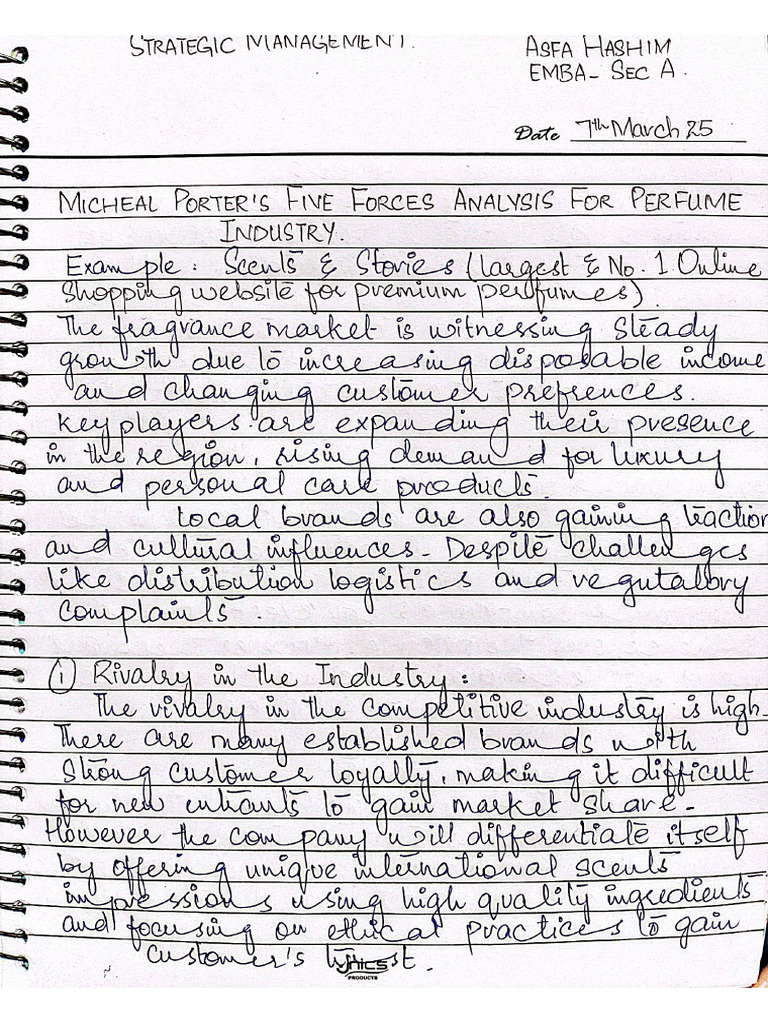 STRATEGIC MANAGEMENT.
ASFA HASHIM
EMBA- SEC A.
Date 7th March 25
MICHEAL PORTER'S FIVE FORCES ANALYSIS FOR PERFUME
INDUSTRY.
Example: Scents & Stories (largest & No. 1 Online
Shopping website for premium perfumes)
The fragrance market is witnessing steady
growth due to increasing disposable income
and changing customer prefrences.
Key players are expanding their presence
in the region, rising demand for luxury
and personal care products.
Local brands are also gaining traction
and cultural influences. Despite challenges
like distribution logistics and regutalory
complaints.
① Rivalry in the Industry:
The rivalry in the competitive industry is high.
There are many established brands with
strong customer loyally, making it difficult
for new entrants to gain market share.
However the company will differentiate itself
by offering unique international scents
impressions using high quality ingredients
and focusing on ethical practices to gain
customer's trust.
PRODUCTS